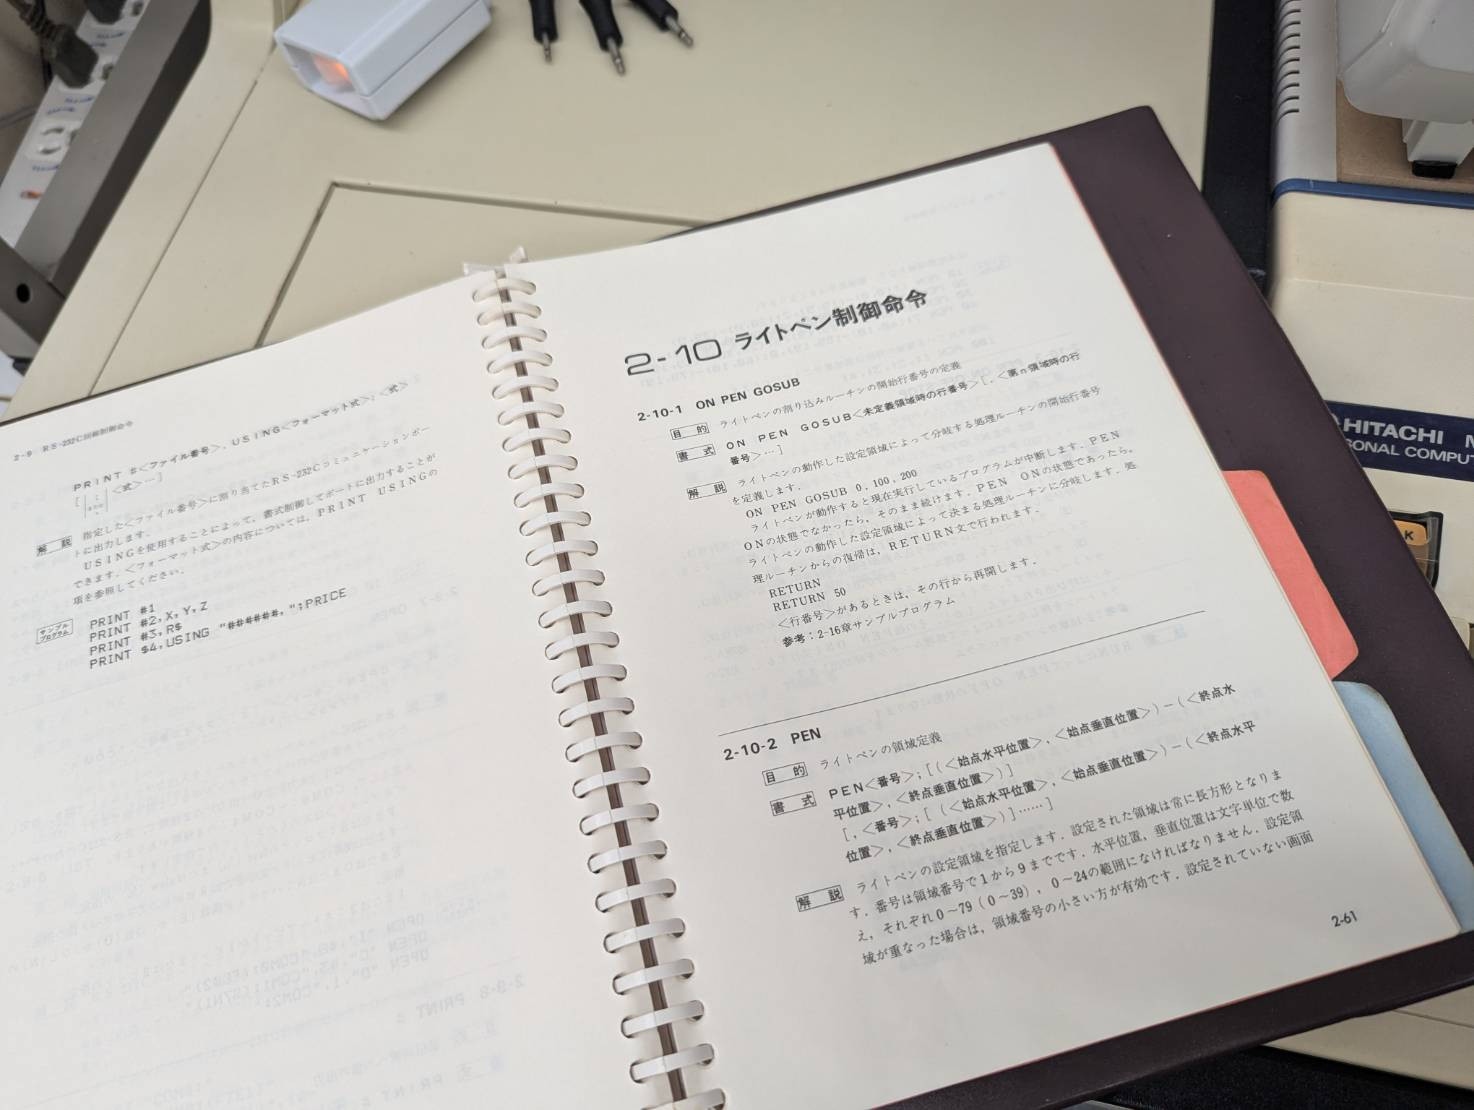 2-9 RS-232C回線制御命令
PRINT #<ファイル番号>, USING<フォーマット式>;<式>
<式>…]
解説 指定した<ファイル番号>に割り当てたRS-232Cコミュニケーションポー
トに出力します.
USINGを使用することによって, 書式制御してポートに出力することが
できます. <フォーマット式>の内容については, PRINT USINGの
項を参照してください.
サンプルプログラム PRINT #1
PRINT #2,X,Y,Z
PRINT #3,R$
PRINT $4,USING "######,";PRICE
2-10 ライトペン制御命令
2-10-1 ON PEN GOSUB
目的 ライトペンの割り込みルーチンの開始行番号の定義
書式 ON PEN GOSUB<未定義領域時の行番号>[, <第n領域時の行
番号>…]
解説 ライトペンの動作した設定領域によって分岐する処理ルーチンの開始行番号
を定義します.
ON PEN GOSUB 0,100,200
ライトペンが動作すると現在実行しているプログラムが中断します. PEN
ONの状態でなかったら, そのまま続けます. PEN ONの状態であったら,
ライトペンの動作した設定領域によって決まる処理ルーチンに分岐します. 処
理ルーチンからの復帰は, RETURN文で行われます.
RETURN
RETURN 50
<行番号>があるときは, その行から再開します.
参考:2-16章サンプルプログラム
2-10-2 PEN
目的 ライトペンの領域定義
書式 PEN<番号>;[(<始点水平位置>, <始点垂直位置>)-(<終点水
平位置>, <終点垂直位置>)]
[, <番号>;[(<始点水平位置>, <始点垂直位置>)-(<終点水平
位置>, <終点垂直位置>)]……]
解説 ライトペンの設定領域を指定します. 設定された領域は常に長方形となりま
す. 番号は領域番号で1から9までです. 水平位置, 垂直位置は文字単位で数
え, それぞれ0~79(0~39), 0~24の範囲になければなりません. 設定領
域が重なった場合は, 領域番号の小さい方が有効です. 設定されていない画面
2-61
HITACHI
SONAL COMPUT
K